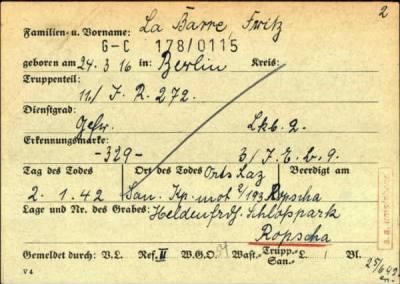 2
Familien- u. Vorname: La Barre, Fritz
G-C 178/0115
geboren am 24. 3. 16 in: Berlin Kreis:
Truppenteil:
11./ J. R. 272.
Dienstgrad:
Gefr. Lkb. 2.
Erkennungsmarke:
-329- 3/ J. E. b. 9.
Tag des Todes Ort des Todes Orts Laz Beerdigt am
2. 1. 42 San. Kp. mot 2/193 Ropscha
Lage und Nr. des Grabes: Heldenfrdf. Schloßpark
Ropscha
Gemeldet durch: V.L. Ref. II W.G.O. Wast.- Trupp. San.- L. Bl.
V 4
25/6 42